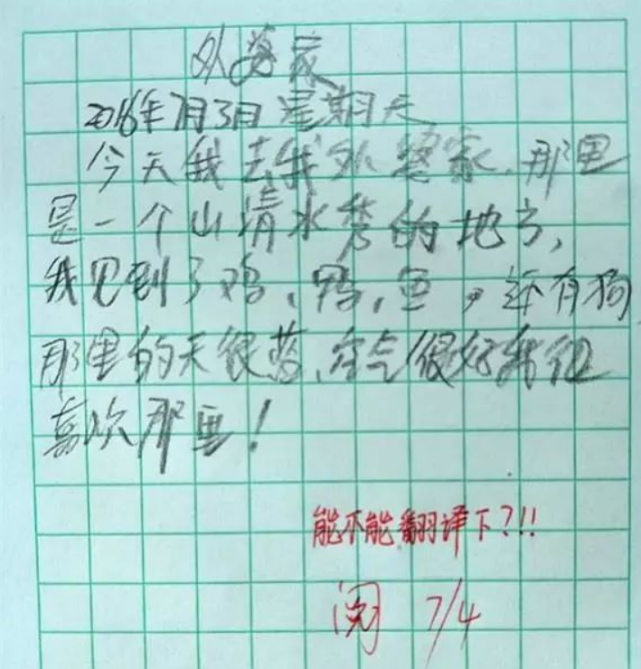 外婆家
2016年7月3日 星期天
今天我去我外婆家,那里
是一个山清水秀的地方,
我见到了鸡、鸭、鱼,还有狗
那里的天很蓝、空气很好我很
喜欢那里!
能不能翻译下?!!
阅 7/4